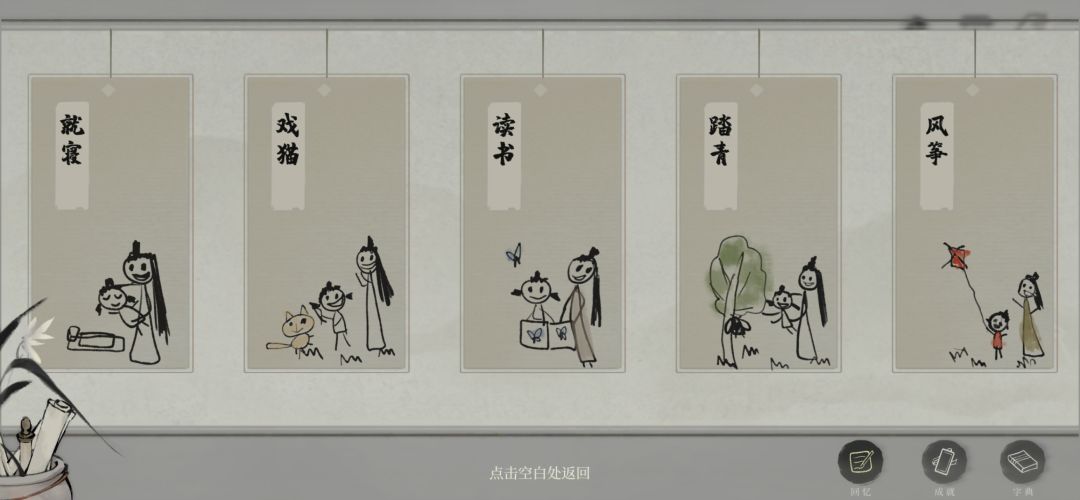 就寝
戏猫
读书
踏青
风筝
点击空白处返回
回忆
成就
字典